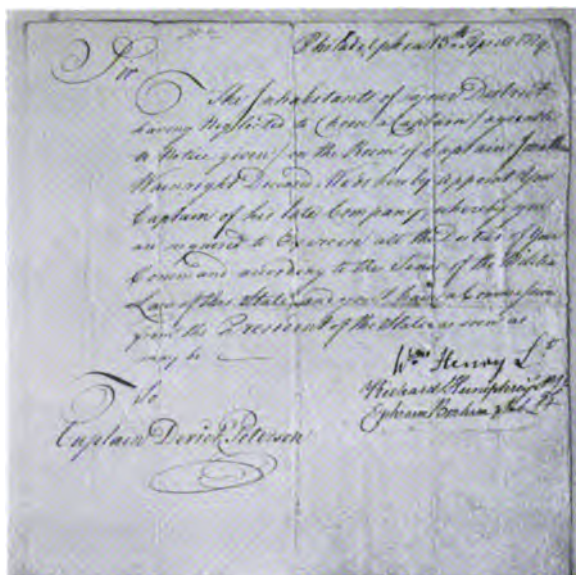 Philadelphia 15th April 1779.
Sir
The Inhabitants of your District
having Neglected to Choose a Captain (agreeable
to Notice given) in the Room of Captain Jonathan
Wainright Deceased. We do hereby appoint You
Captain of his late Company, whereby you
are required to Exercise all the Duties of Your
Command according to the Tenor of the Militia
Law of this State, and you'l have a Commission
from the President of the State as soon as
may be
Wm. Henry Lt.
Richard Humphreys
Ephraim
To
Captain Derick Peterson